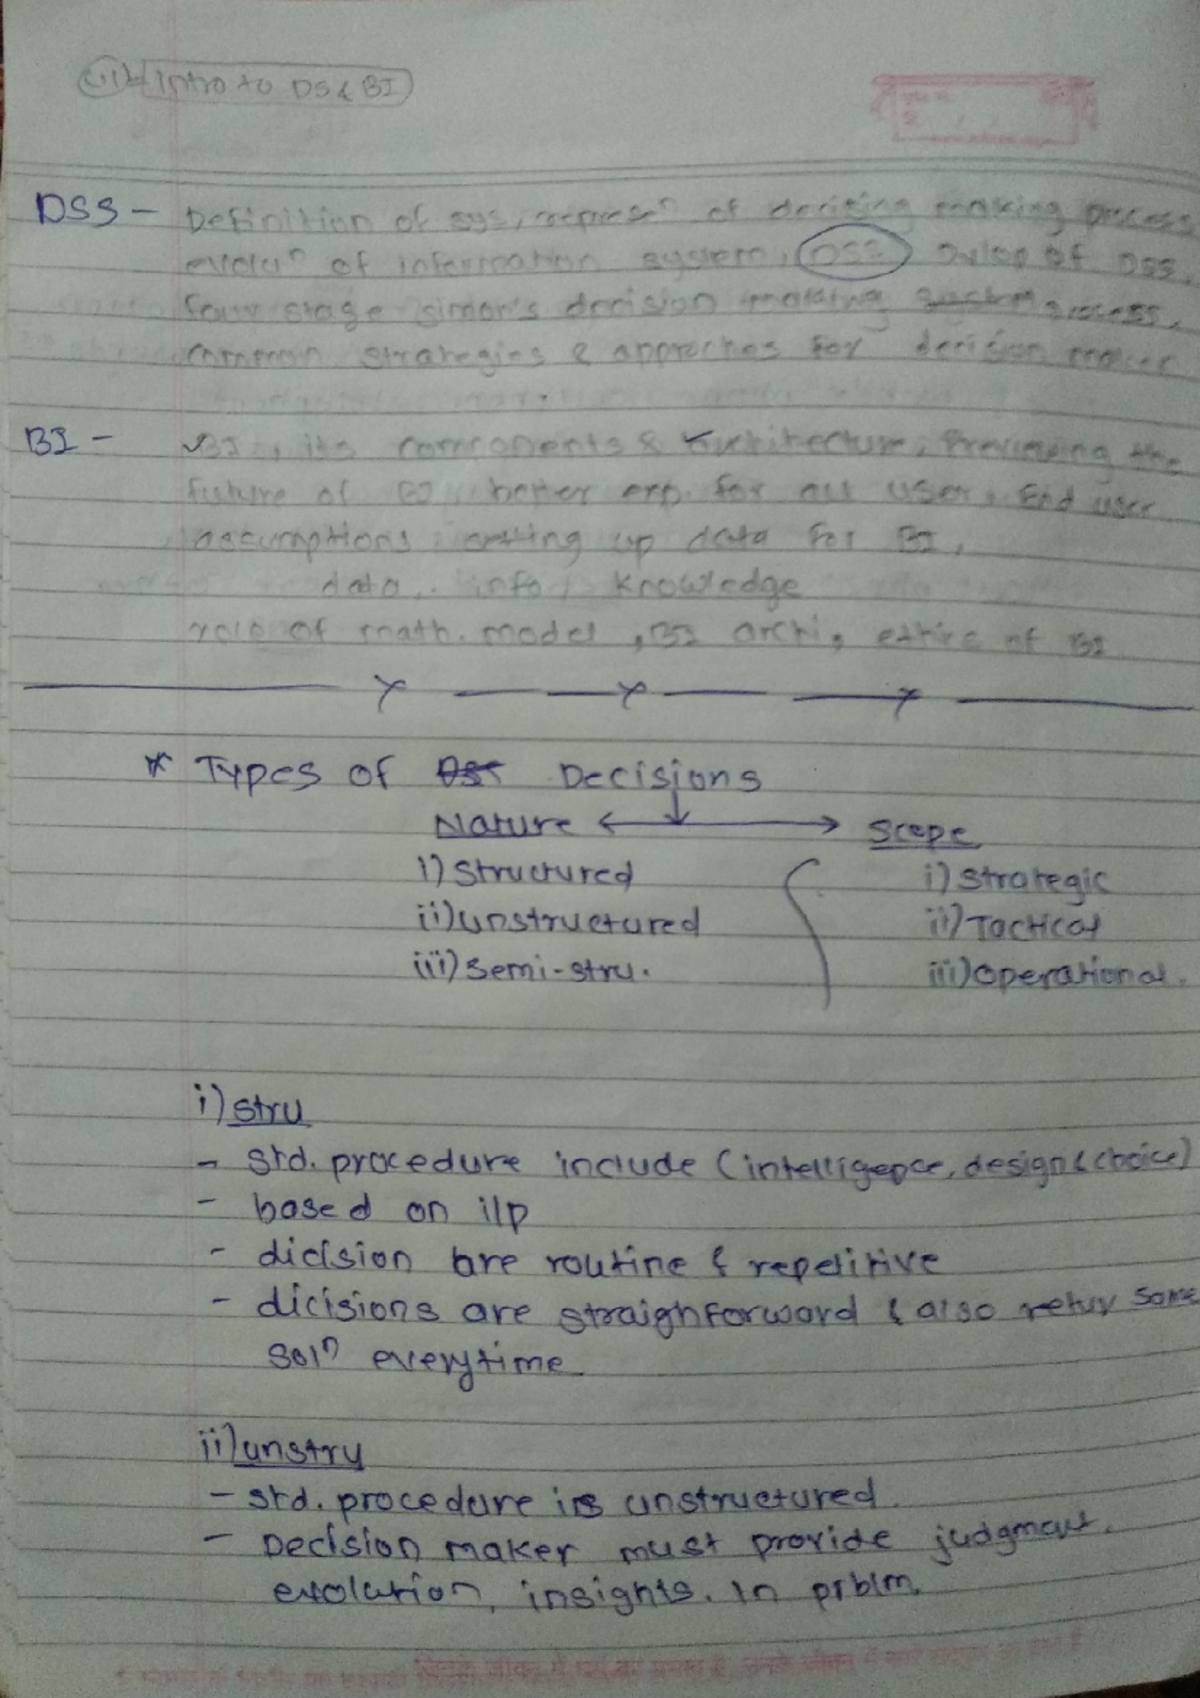 Intro to DS & BI
DSS - Definition of sys, represⁿ of deciting making process
evoluⁿ of information system, DSS Dvlop of DSS,
four stage simon's decision making process,
common strategies & approches for decision maker
BI - BI, its components & Architecture, Previewing the
future of BI better exp. for all user, End user
assumptions setting up data for BI,
data, info, knowledge
role of math. model, BI archi, ethics of BI
* Types of Decisions
Nature Scope
i) Structured i) Strategic
ii) unstructured ii) Tactical
iii) Semi-stru. iii) Operational.
i) stru
- Std. procedure include (intelligence, design & choice)
- based on i/p
- dicision are routine & repetitive
- dicisions are straighforward & also retur same
solⁿ everytime
ii) unstru
- std. procedure is unstructured.
- Decision maker must provide judgment,
evolution, insights. In prblm.